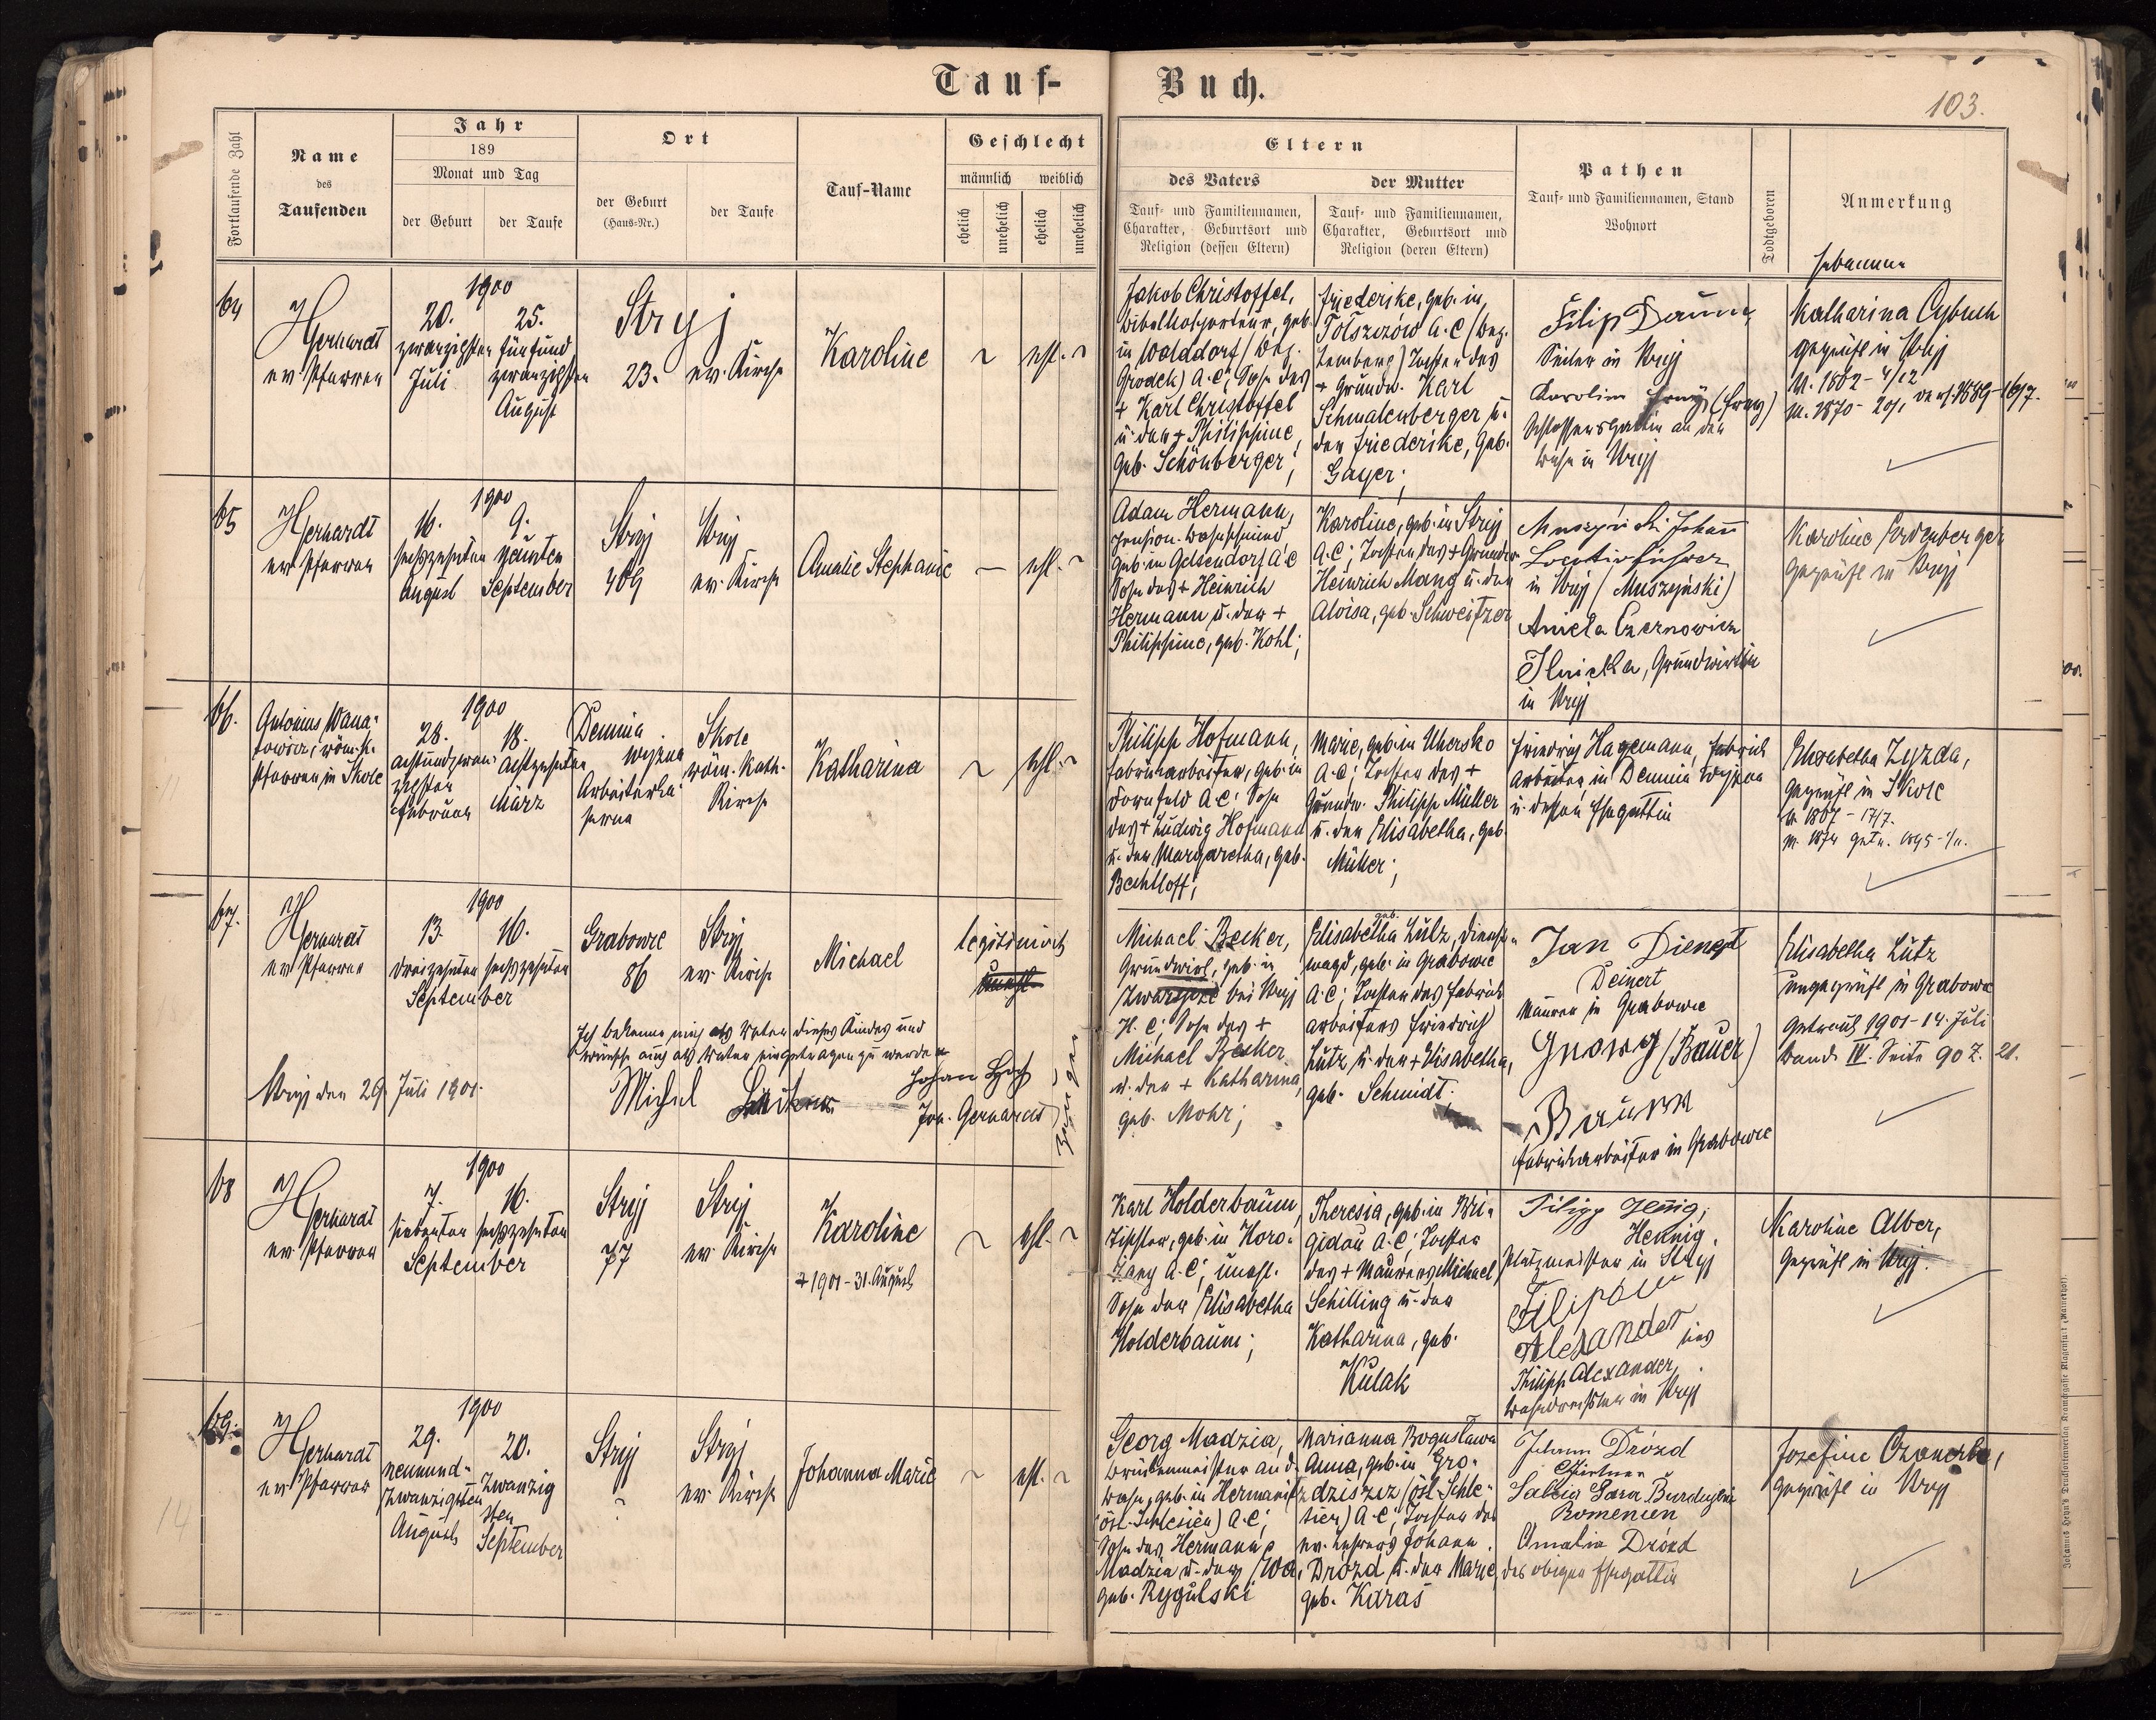 Tauf-
Buch.
103.
Fortlaufende Zahl
Name
des
Taufenden
Jahr
189
Monat und Tag
der Geburt
der Taufe
Ort
der Geburt
(Haus-Nr.)
der Taufe
Tauf-Name
Geschlecht
männlich weiblich
ehelich
unehelich
ehelich
unehelich
Eltern
des Vaters
Tauf- und Familiennamen,
Charakter, Geburtsort und
Religion (dessen Eltern)
der Mutter
Tauf- und Familiennamen,
Charakter, Geburtsort und
Religion (deren Eltern)
Pathen
Tauf- und Familiennamen, Stand
Wohnort
Todtgeboren
Anmerkung
Hebamme
64
Gerhardt
ev Pfarrer
1900
20.
zwanzigsten
Juli
25.
fünfund
zwanzigsten
August
Stryj
23.
ev. Kirche
Karoline
ehl.
Jakob Christoffel,
Bibelkolporteur, geb.
in Walddorf (Bez.
Grodek) A.C; Sohn des
+ Karl Christoffel
u. der + Philippine,
geb. Schönberger;
Friederike, geb. in
A.C (Bez.
Lemberg) Tochter des
+ Grundw. Karl
Schmalenberger u.
der Friederike, geb.
Gayer;
Filip Daum,
Seiler in Stryj
Karolin Frey (Frey)
Schlossersgattin an der
Bahn in Stryj
Katharina Cybuch
geprüft in Stryj
65
Gerhardt
ev Pfarrer
1900
16.
sechszehnten
August
9.
neunten
September
Stryj
409
Stryj
ev. Kirche
Amalie Stephanie
ehl.
Adam Hermann,
pension. Bahnschmied,
geb. in Gelsendorf A C
Sohn des + Heinrich
Hermann u. der +
Philippine, geb. Kohl;
Karoline, geb. in Stryj
A.C; Tochter des + Grundw.
Heinrich Mang u. der
Aloisa, geb. Schweitzer
Muszyński Johann
Locotivführer
in Stryj (Muszyński)
Aniela Czernowicz
Ilnicka, Grundwirthin
in Stryj
Karoline Erdenberger
geprüft in Stryj
66.
Antonius
röm. k.
Pfarrer in Skole
1900
28.
achtundzwan-
zigsten
Februar
18.
achtzehnten
März
Demnia
wyżna
Arbeiterka-
serne
Skole
röm. kath.
Kirche
Katharina
ehl.
Philipp Hofmann,
Fabriksarbeiter, geb. in
Dornfeld A C; Sohn
des + Ludwig Hofmann
u. der Margaretha, geb.
Bechtloff;
Marie, geb. in Uhersko
A.C; Tochter des +
Grundw. Philipp Müller
u. der Elisabetha, geb.
Müller;
Friedrich Hagemann, Fabriks
arbeiter in Demnia Wyżna
u. dessen Ehegattin
Elisabetha Zyzda,
geprüft in Skole
67.
Gerhardt
ev Pfarrer
1900
13.
dreizehnten
16.
sechszehnten
September
Grabowce
86
Stryj
ev. Kirche
Michael
legitimirt
unehl.
Ich bekenne mich als Vater dieses Kindes und
wünsche auch als Vater eingetragen zu werden
Stryj den 29. Juli 1901.
Joh. Gerhardt
Zeugen
Michael Becker,
Grundwirt, geb. in
bei Stryj
H. C; Sohn des +
Michael Becker
u. der + Katharina,
geb. Mohr;
Elisabetha geb. Lutz, Dienst-
magd, geb. in Grabowce
A.C; Tochter des Fabriks
arbeiters Friedrich
Lutz u. der + Elisabetha,
geb. Schmidt;
Jan Dienert
Deinert
Maurer in Grabowce
(Bauer)
Fabriksarbeiter in Grabowce
Elisabetha Lutz
ungeprüft in Grabowce
Getraut 1901-14. Juli
Band IV. Seite 90 Z. 21.
68
Gerhardt
ev Pfarrer
1900
7.
siebenten
16.
sechszehnten
September
Stryj
77
Stryj
ev Kirche
Karoline
+ 1901-31. August
ehl.
Karl Holderbaum,
Tischler, geb. in Horo-
żany A.C; unehl.
Sohn der Elisabetha
Holderbaum;
Theresia, geb. in Bri-
gidau A.C; Tochter
des + Maurers Michael
Schilling u. der
Katharina, geb.
Kulak
Filipp Henig,
Hennig.
Platzmeister in Stryj
Filipow
Alexander
Philipp Alexander,
in Stryj
Karoline Alber,
geprüft in Stryj.
69.
Gerhardt
ev Pfarrer
1900
29.
neunund-
zwanzigsten
August
20.
zwanzig
sten
September
Stryj
?
Stryj
ev. Kirche
Johanna Marie
ehl.
Georg Madzia,
Brückenmeister an d.
Bahn, geb. in
(öst. Schlesien) A.C;
Sohn des Hermann
Madzia u. der
geb. Rygulski
Marianna Bogusława
Anna, geb. in Gro-
dziszcz (öst. Schle-
sien) A C; Tochter des
ev. Lehrers Johann
Drózd u. der Marie,
geb. Karas
Johann Drózd
Gärtner
Romenien
Amalia Drózd
des obigen Ehegattin
Josefine
geprüft in Stryj
14